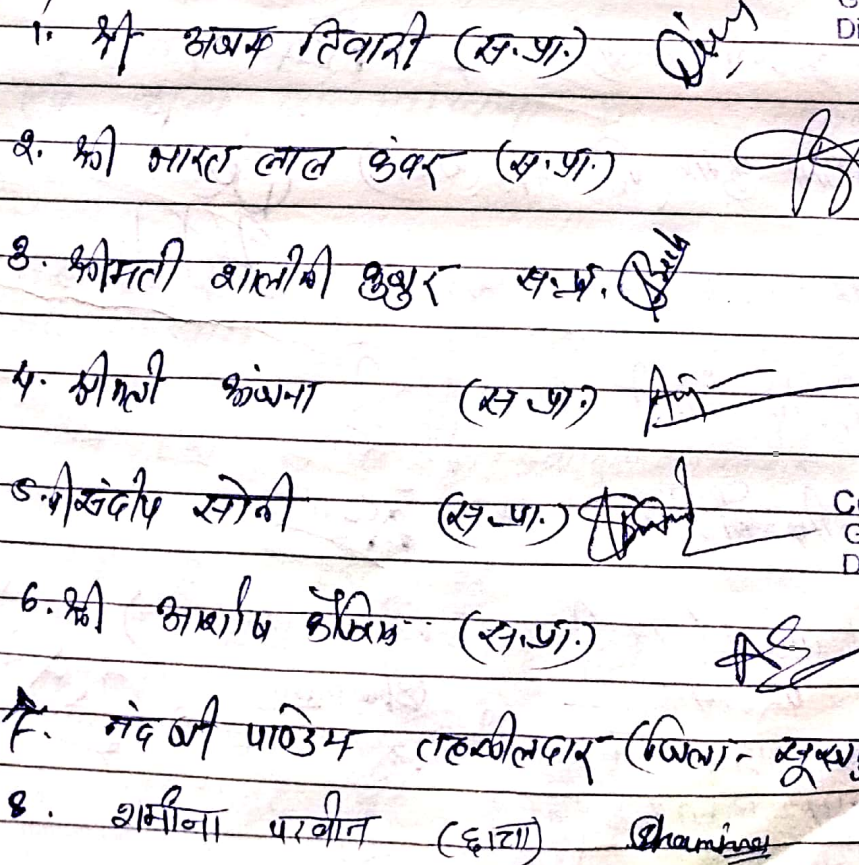 1. श्री अजय तिवारी (स.प्रा.)
2. श्री भारत लाल कंवर (स.प्रा.)
3. श्रीमती शालीनी कुजुर स.प्रा.
4. श्रीमती अंजना (स.प्रा.)
5. श्री संदीप सोनी (स.प्रा.)
6. श्री आशीष कौशिक (स.प्रा.)
7. नंद जी पाण्डेय तहसीलदार (जिला-
8. शमीना परवीन (छात्रा) Shamina